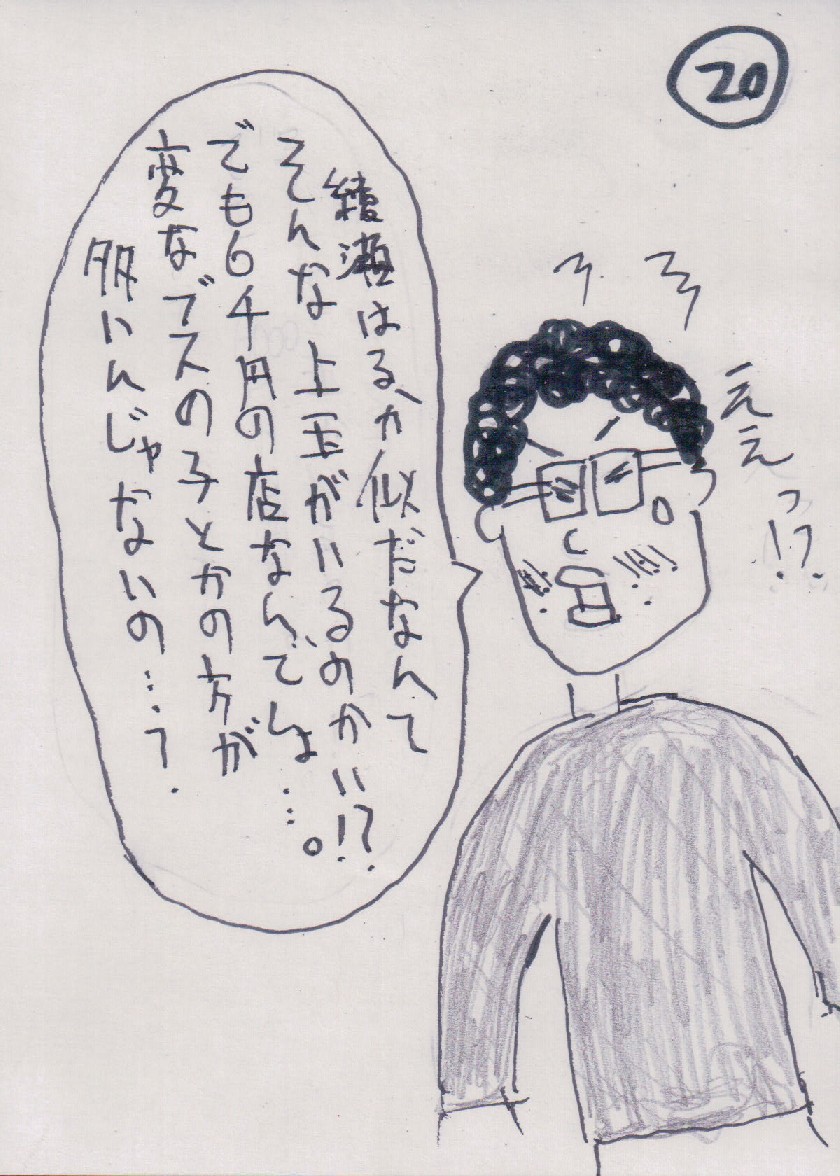 20
ええっ!?
綾瀬はるか似だなんて
そんな上玉がいるのかい!?
でも6千円の店なんでしょ…。
変なブスの子とかの方が
多いんじゃないの…?